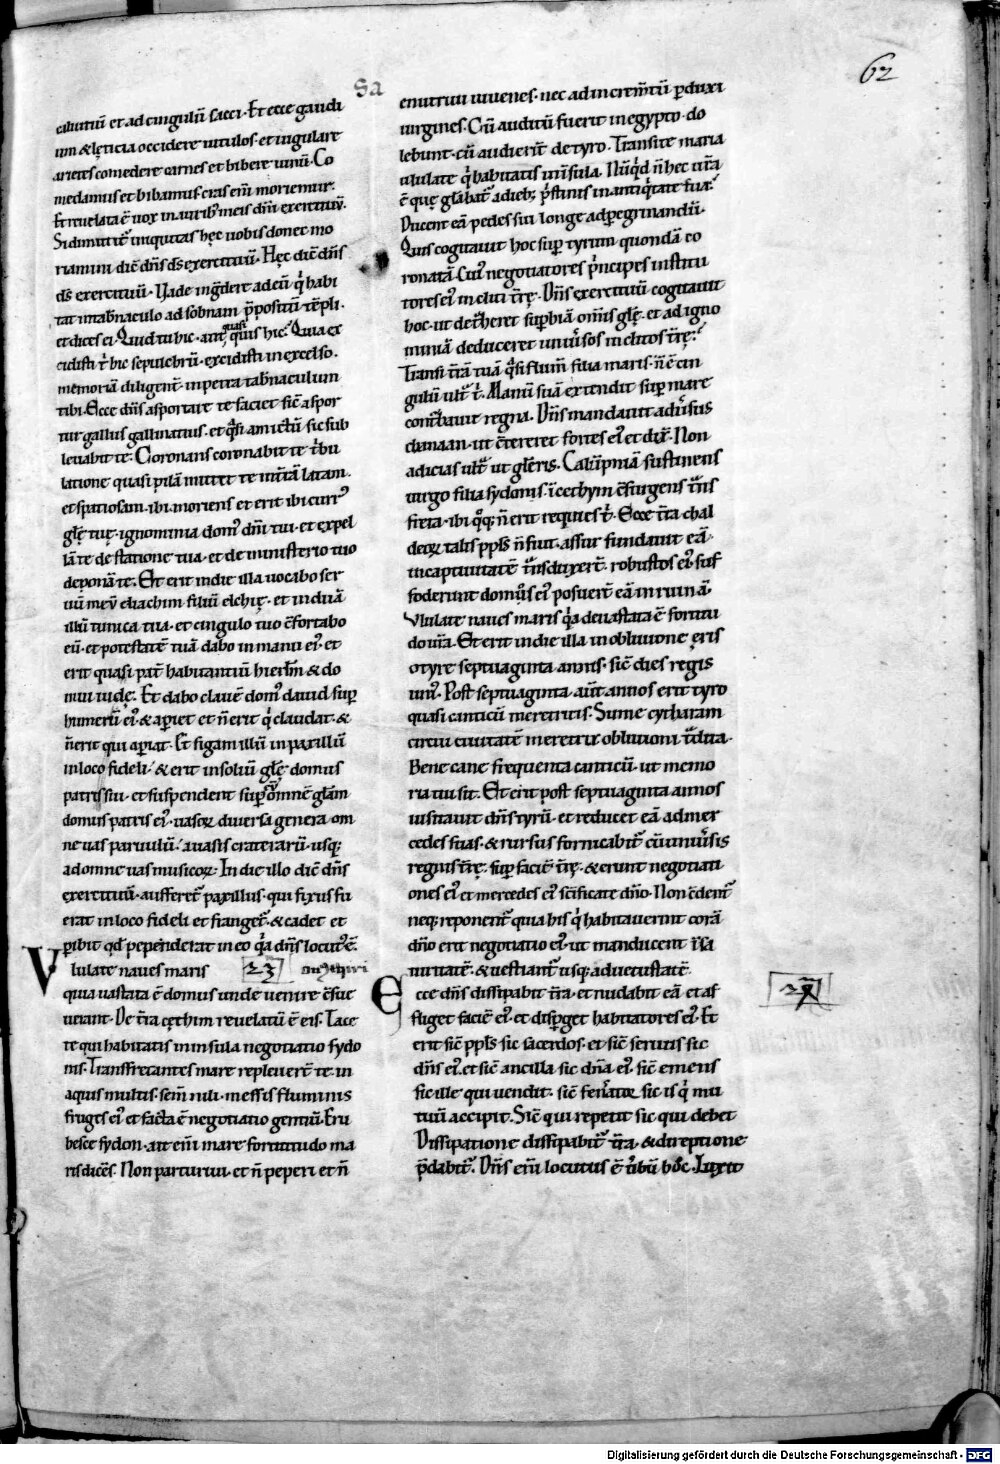 62
Sa
caluitiũ et ad cingulũ sacci. Et ecce gaudi
um & lęticia occidere uitulos. et iugulare
arietes comedere carnes et bibere uinũ. Co
medamus et bibamus cras eni͂ moriemur.
Et reuelata ẽ uox in aurib; meis dñi exercituũ.
Si dimittet͛ iniquitas hęc uobis donec mo
riamini dic̃ dñs ds̃ exercituũ. Hęc dic̃ dñs
ds̃ exercituũ. Vade ingredere ad eũ q̍ habi
tat in tab̃naculo ad sobnam p̃positũ tẽpli.
et dices ei. Quid tu hic. aut quasi quis hic. Quia ex
cidisti t̍ hic sepulchrũ. excidisti in excelso.
memoriã diligent͛. in petra tab̃naculum
tibi. Ecce dñs asportare te faciet sic̃ aspor
tur gallus gallinatius. et q̃si amictũ sic sub
leuabit te. Coronans coronabit te t̍bu
latione quasi pilã mittet te in t̃rã latam.
et spatiosam. ibi morieris et erit ibi curr᷒
glę tuę. ignominia dom᷒ dñi tui. et expel
lã te de statione tua. et de ministerio tuo
deponã te. Et erit in die illa uocabo ser
uũ meũ eliachim filiũ elchię. et induã
illũ tunica tua. et cingulo tuo c̃fortabo
eũ. et potestatẽ tuã dabo in manu ei᷒. et
erit quasi pat͛ habitantiũ hierlm̃ & do
mui iudę. Et dabo clauẽ dom᷒ dauid sup̱
humerũ ei᷒. & ap̱iet et ñ erit q̍ claudat. &
ñ erit qui ap̱iat. Et figam illũ in paxillũ
in loco fideli. & erit in soliũ glę̃ domus
patris sui. et suspendent sup̱ eũ omnẽ glãm
domus patris ei᷒. uasoꝝ diuersa genera om
ne uas paruulũ. a uasis craterarũ. usq;
ad omne uas musicoꝝ. In die illo dic̃ dñs
exercituũ. aufferet͛ paxillus. qui fixus fu
erat in loco fideli et franget͛. & cadet et
p̱ibit qd̃ pependerat in eo q̍a dñs locut᷒ ẽ.
Vlulate naues maris 23
quia uastata ẽ domus unde uenire c̃sue
uerant. De t̃ra cethim reuelatũ ẽ eis. Tace
te qui habitatis in insula negotiatio sydo
nis. Transfretantes mare repleuerẽ te. in
aquis multis. sem̃ nili. messis fluminis
fruges ei᷒ et facta ẽ negotiatio gentiũ. Eru
besce sydon. ait eni͂ mare fortitudo ma
ris dicẽs. Non parturiui. et ñ peperi et ñ
enutriui iuuenes. nec ad incrementũ p̱duxi
uirgines. Cũ auditũ fuerit in egypto. do
lebunt. cũ audierint de tyro. Transite maria
ululate q̍ habitatis in insula. Nũq̍d ñ hec ur̃a
ẽ quę gl̃abat͛ a dieb; p̍stinis in antiq̍tate sua.
Ducent eã pedes sui longe ad p̱egrinandũ.
Quis cogitauit hoc sup̱ tyrum quondã co
ronatã. Cui᷒ negotiatores p̍ncipes institu
tores ei᷒ incliti t̃rę. Dñs exercituũ cogitauit
hoc. ut det̃heret sup̱biã om̃is glę. et ad igno
miniã deduceret uniũsos inclitos t̃rę.
Transi t̃rã tuã q̃si flum̃ filia maris. ñ ẽ cin
gulũ ult͛ t̍. Manũ suã extendit sup̱ mare
cont̃bauit regna. Dñs mandauit adũsus
chanaan. ut c̃tereret fortes ei᷒. et dix̃. Non
adicias ult͛ ut gl̃eris. Calũpniã sustinens
uirgo filia sydonis. i cethym c̃surgens t̃ns
freta. ibi q̊q; ñ erit requies t̍. Ecce t̃ra chal
deoꝝ talis ppl̃s ñ fuit. assur fundauit eã.
in captiuitatẽ t̃nsduxert̃. robustos ei᷒. suf
foderunt domũs ei᷒. posuert̃ eã in ruinã.
Vlulate naues maris q̍a deuastata ẽ fortitu
do ur̃a. Et erit in die illa in obliuione ęris
o tyre septuaginta annis. sic̃ dies regis
uni᷒. Post septuaginta aut̃ annos erit tyro
quasi canticũ meretritis. Sume cytharam
circui ciuitatẽ meretrix obliuioni t̃dita.
Bene cane frequenta canticũ. ut memo
ria tui sit. Et erit post septuaginta annos
uisitauit dñs tyrũ. et reducet eã ad mer
cedes suas. & rursus fornicabit͛ cũ uniũsis
regnis t̃rę. sup̱ faciẽ t̃rę. & erunt negotiati
ones ei᷒ et mercedes ei᷒ sc̃ificate dño. Non c̃dent͛
neq; reponent͛ quia his q̍ habitauerint corã
dño erit negotiatio ei᷒. ut manducent i sa
turitatẽ. & uestiant͛ usq; ad uetustatẽ.
Ecce dñs dissipabit t̃rã. et nudabit eã et af
fliget faciẽ ei᷒. et disp̱get habitatores ei᷒. Et
erit sic̃ ppl̃s sic sacerdos. et sic̃ seruus sic
dñs ei᷒. et sic̃ ancilla sic dña ei᷒. sic̃ emens
sic ille qui uendit. sic̃ fen̍ator sic is q̍ mu
tuũ accipit. Sic̃ qui repetit sic qui debet
Dissipatione dissipabit͛ t̃ra. & direptione
p̃dabit͛. Dñs eni͂ locutus ẽ ũbũ hoc. Luxit
Digitalisierung gefördert durch die Deutsche Forschungsgemeinschaft - DFG